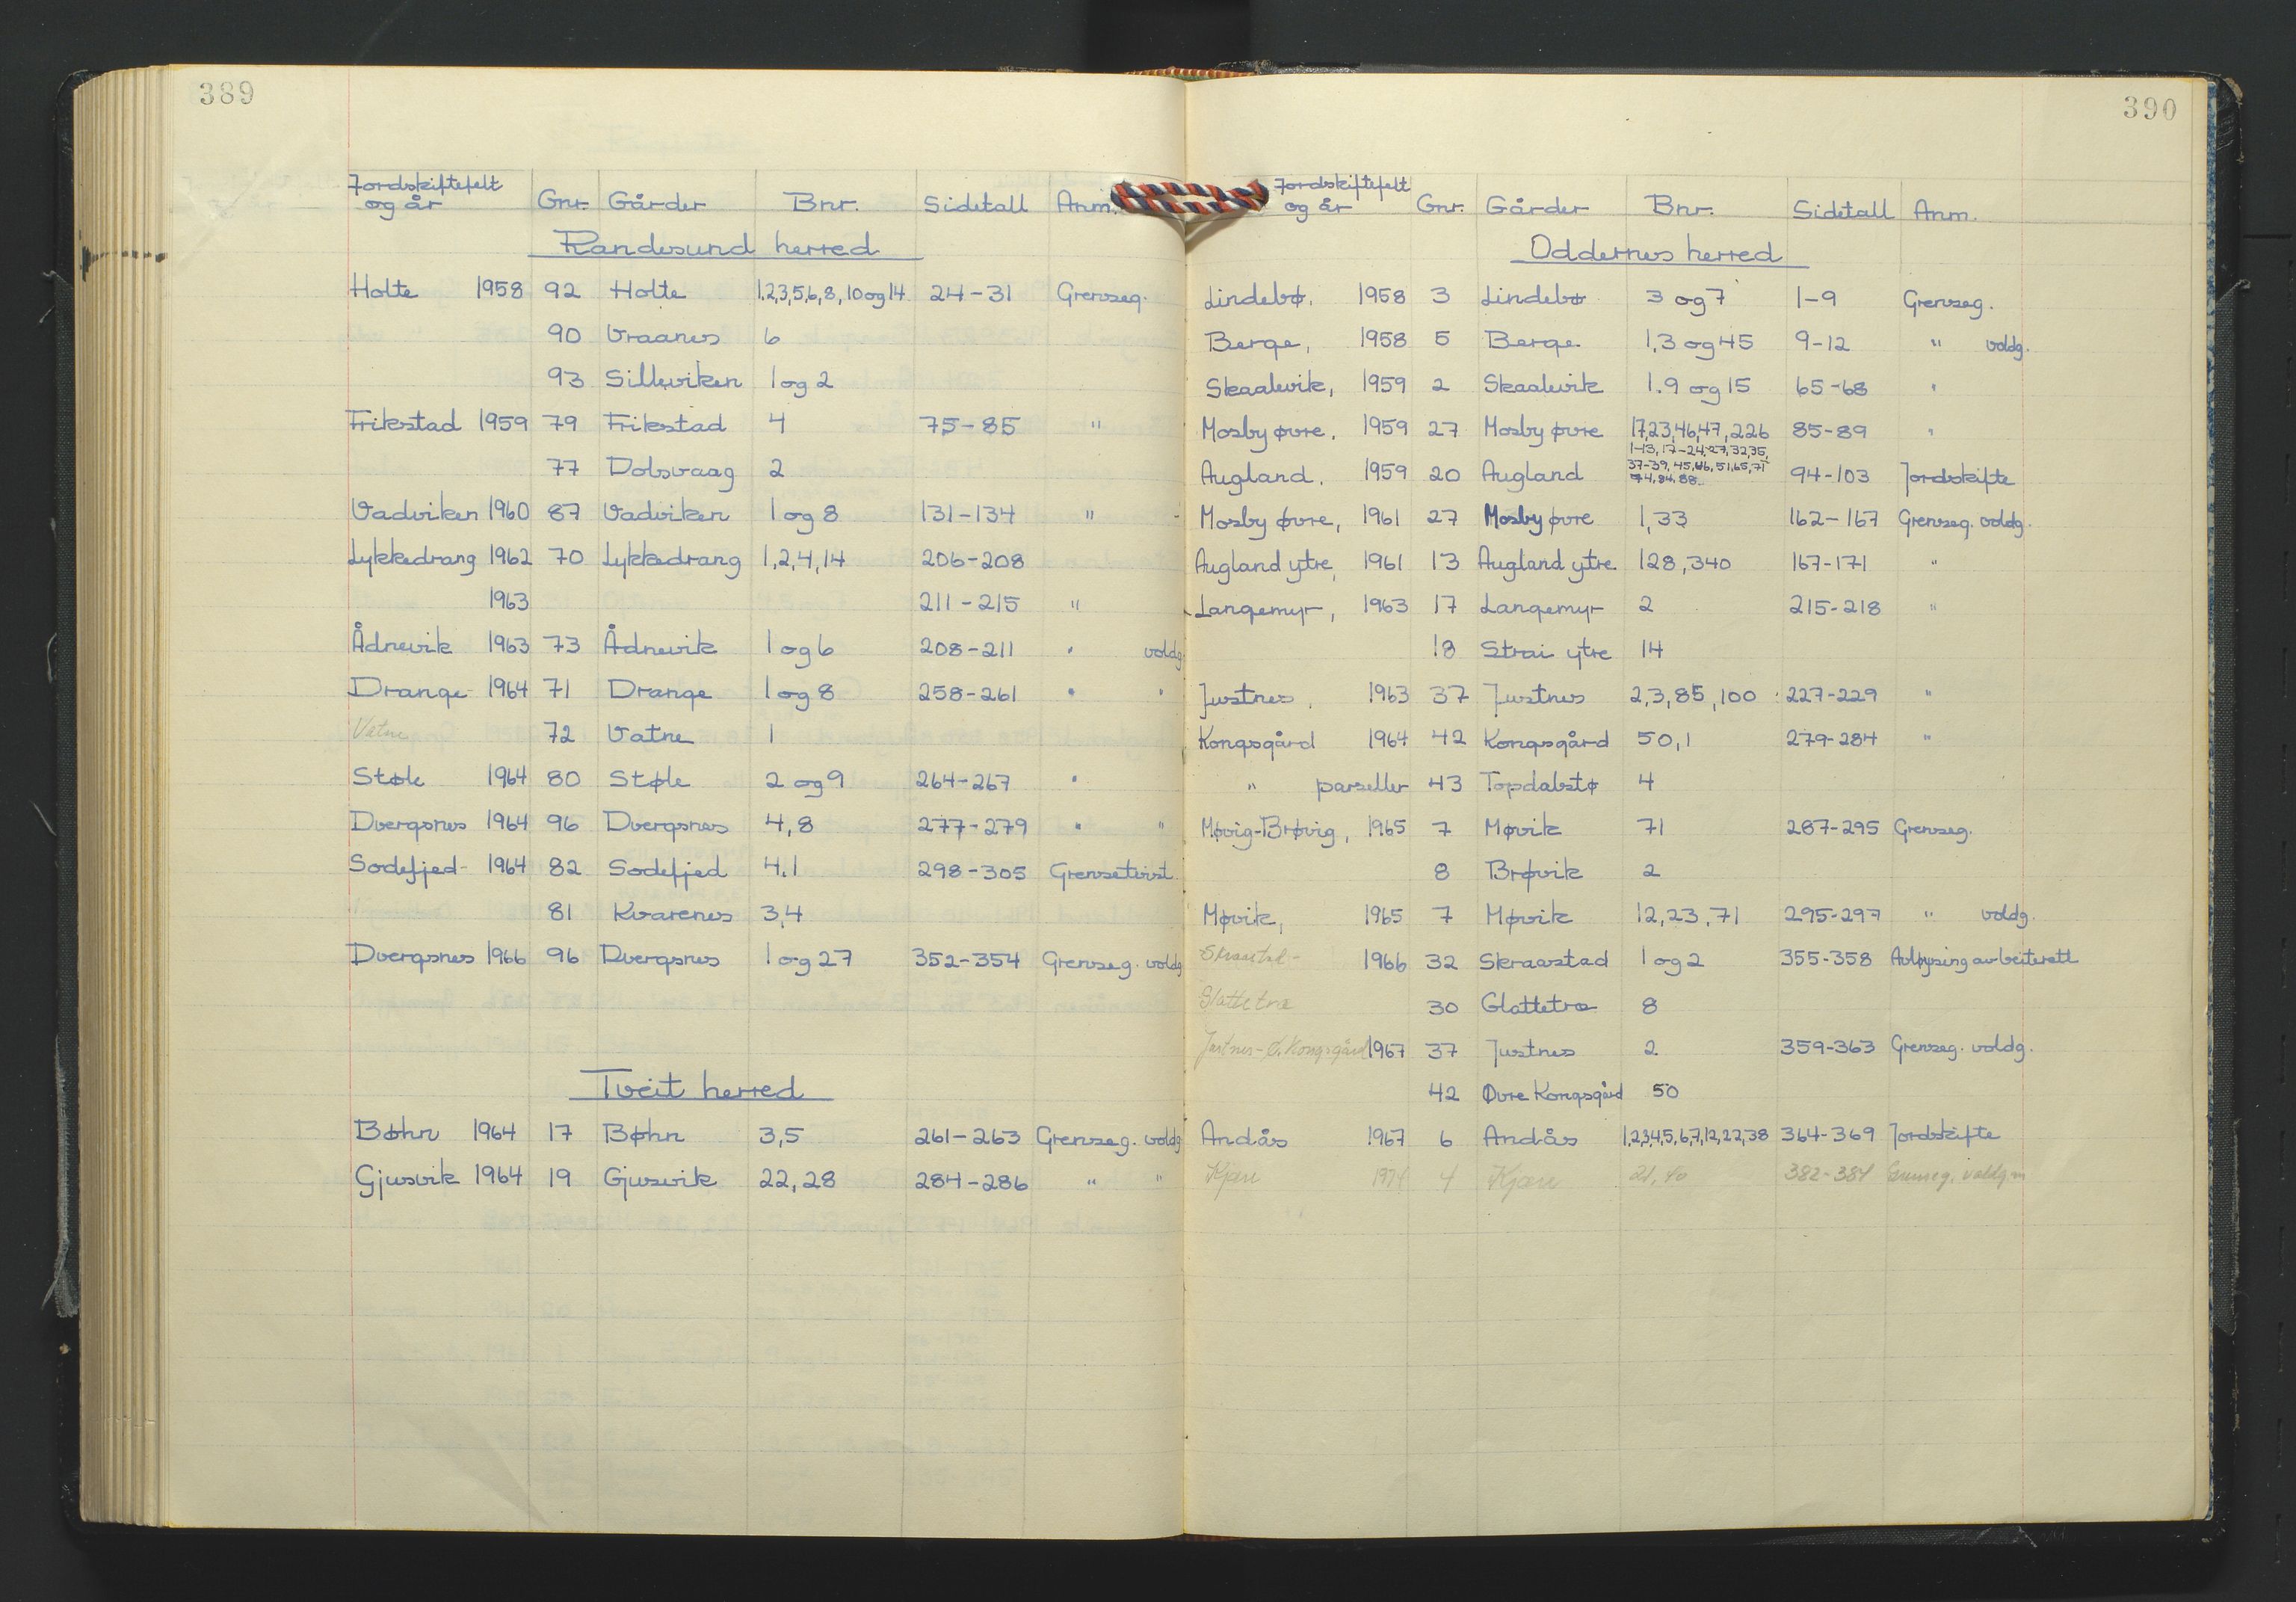 389
Jordskiftefelt og år Gnr. Gårder Bnr. Sidetall Anm.
Randesund herred
Holte 1958 92 Holte 1,2,3,5,6,8,10 og 14 24-31 Grenseg.
90 Vraanes 6
93 Silleviken 1 og 2
Frikstad 1959 79 Frikstad 4 75-85 "
77 Dobvaag 2
Vadviken 1960 87 Vadviken 1 og 8 131-134 "
Lykkedrang 1962 70 Lykkedrang 1,2,4,14 206-208
1963 211-215 "
Ådnevik 1963 73 Ådnevik 1 og 6 208-211 " voldg.
Drange 1964 71 Drange 1 og 8 258-261 " "
Vatne 72 Vatne 1
Støle 1964 80 Støle 2 og 9 264-267 "
Dvergsnes 1964 96 Dvergsnes 4,8 277-279 " "
Sodefjed 1964 82 Sodefjed 4,1 298-305 Grensetvist
81 Kvarenes 3,4
Dvergsnes 1966 96 Dvergsnes 1 og 27 352-354 Grenseg. voldg
Tveit herred
Bøhn 1964 17 Bøhn 3,5 261-263 Grenseg. voldg
Gjusvik 1964 19 Gjusvik 22,28 284-286 " "
390
Jordskiftefelt og år Gnr. Gårder Bnr. Sidetall Anm.
Oddernes herred
Lindebø, 1958 3 Lindebø 3 og 7 1-9 Grenseg.
Berge, 1958 5 Berge 1,3 og 45 9-12 " voldg.
Skaalevik, 1959 2 Skaalevik 1.9 og 15 65-68 "
Mosby øvre, 1959 27 Mosby øvre 17,23,46,47,226 85-89 "
Augland, 1959 20 Augland 1-13, 17-24, 27, 32, 35, 37-39, 45, 46, 51, 65, 71 74, 84, 88. 94-103 Jordskifte
Mosby øvre, 1961 27 Mosby øvre 1,33 162-167 Grenseg. voldg.
Augland ytre, 1961 13 Augland ytre 128,340 167-171 "
Langemyr, 1963 17 Langemyr 2 215-218 "
18 Strai ytre 14
Justnes, 1963 37 Justnes 2,3,85,100 227-229 "
Kongsgård 1964 42 Kongsgård 50,1 279-284 "
" parseller 43 Topdalstø 4
Møvig-Brøvig, 1965 7 Møvik 71 287-295 Grenseg.
8 Brøvik 2
Møvik, 1965 7 Møvik 12,23,71 295-297 " voldg.
1966 32 Skraastad 1 og 2 355-358 Avløysing av beiterett
Glattetræ 30 Glattetræ 8
Justnes-Ø. Kongsgård 1967 37 Justnes 2 359-363 Grenseg. voldg.
42 Øvre Kongsgård 50
Andås 1967 6 Andås 1,2,3,4,5,6,7,12,22,38 364-369 Jordskifte
Kjær 1974 4 Kjær 21,40 382-384 Grenseg. voldg.